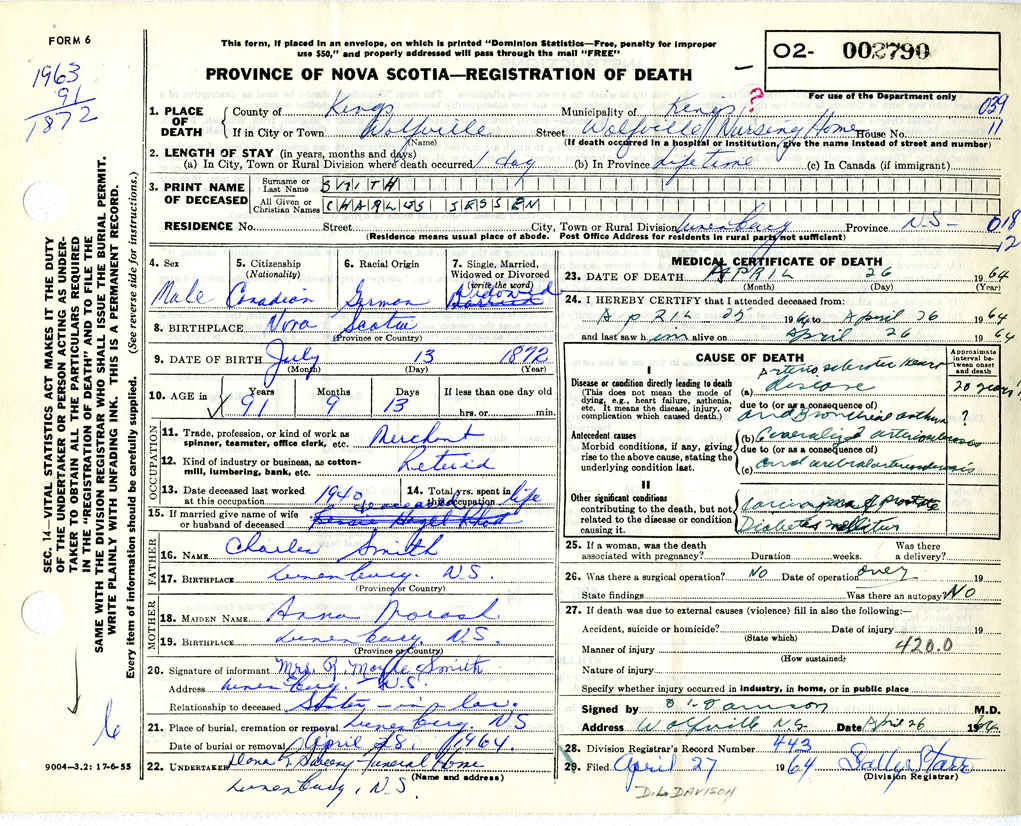 FORM 6
1963
91
1872
This form, if placed in an envelope, on which is printed "Dominion Statistics—Free, penalty for improper
use $50," and properly addressed will pass through the mail "FREE"
PROVINCE OF NOVA SCOTIA—REGISTRATION OF DEATH
O2- 002790
For use of the Department only
039
11
1. PLACE OF DEATH
County of Kings Municipality of Kings ?
If in City or Town Wolfville Street Wolfville Nursing Home House No.
(Name) (If death occurred in a hospital or institution, give the name instead of street and number)
2. LENGTH OF STAY (in years, months and days)
(a) In City, Town or Rural Division where death occurred 1 day (b) In Province Life time (c) In Canada (if immigrant)
3. PRINT NAME OF DECEASED
Surname or Last Name SMITH
All Given or Christian Names CHARLES JESSEN
RESIDENCE No. Street City, Town or Rural Division Lunenburg Province N.S— 018
12
(Residence means usual place of abode. Post Office Address for residents in rural parts not sufficient)
4. Sex Male
5. Citizenship (Nationality) Canadian
6. Racial Origin German
7. Single, Married, Widowed or Divorced (write the word) Widowed married
8. BIRTHPLACE Nova Scotia
(Province or Country)
9. DATE OF BIRTH July 13 1872
(Month) (Day) (Year)
10. AGE in Years 91 Months 9 Days 13 If less than one day hrs. or min.
OCCUPATION
11. Trade, profession, or kind of work as spinner, teamster, office clerk, etc. Merchant
12. Kind of industry or business, as cotton-mill, lumbering, bank, etc. Retired
13. Date deceased last worked at this occupation 1940
14. Total yrs. spent in this occupation life
15. If married give name of wife or husband of deceased
FATHER
16. NAME Charles Smith
17. BIRTHPLACE Lunenburg. N.S.
(Province or Country)
MOTHER
18. MAIDEN NAME Anna
19. BIRTHPLACE Lunenburg, N.S.
(Province or Country)
20. Signature of informant Mrs. R. Smith
Address Lunenburg. N.S.
Relationship to deceased Sister-in-law.
21. Place of burial, cremation or removal Lunenburg. NS
Date of burial or removal April 28, 1964.
22. UNDERTAKER Sweeny Funeral Home
(Name and address)
Lunenburg, N.S.
MEDICAL CERTIFICATE OF DEATH
23. DATE OF DEATH APRIL 26 1964
(Month) (Day) (Year)
24. I HEREBY CERTIFY that I attended deceased from:
APRIL 25 1964 to April 26 1964
and last saw him alive on April 26 1964
CAUSE OF DEATH
Approximate interval between onset and death
I
Disease or condition directly leading to death
(This does not mean the mode of dying, e.g., heart failure, asthenia, etc. It means the disease, injury, or complication which caused death.)
(a) Arteriosclerotic Heart disease 20 years
due to (or as a consequence of)
and Bronchial asthma ?
Antecedent causes
Morbid conditions, if any, giving rise to the above cause, stating the underlying condition last.
(b) Generalized arteriosclerosis
due to (or as a consequence of)
(c) and cerebral arteriosclerosis
II
Other significant conditions contributing to the death, but not related to the disease or condition causing it.
Carcinoma of prostate
Diabetes mellitus
25. If a woman, was the death associated with pregnancy? Duration weeks. Was there a delivery?
26. Was there a surgical operation? NO Date of operation 19
State findings Was there an autopsy? NO
27. If death was due to external causes (violence) fill in also the following:—
Accident, suicide or homicide? Date of injury 19
(State which)
Manner of injury 420.0
(How sustained)
Nature of injury
Specify whether injury occurred in industry, in home, or in public place
Signed by M.D.
Address Wolfville N.S. Date April 26 1964
28. Division Registrar's Record Number 443
29. Filed April 27 1964 Sally Starr
(Division Registrar)
D.L. DAVISON
SEC. 14—VITAL STATISTICS ACT MAKES IT THE DUTY
OF THE UNDERTAKER OR PERSON ACTING AS UNDER-
TAKER TO OBTAIN ALL THE PARTICULARS REQUIRED
IN THE "REGISTRATION OF DEATH" AND TO FILE THE
SAME WITH THE DIVISION REGISTRAR WHO SHALL ISSUE THE BURIAL PERMIT.
WRITE PLAINLY WITH UNFADING INK. THIS IS A PERMANENT RECORD.
Every item of information should be carefully supplied. (See reverse side for instructions.)
6
9004—3.2: 17-6-55